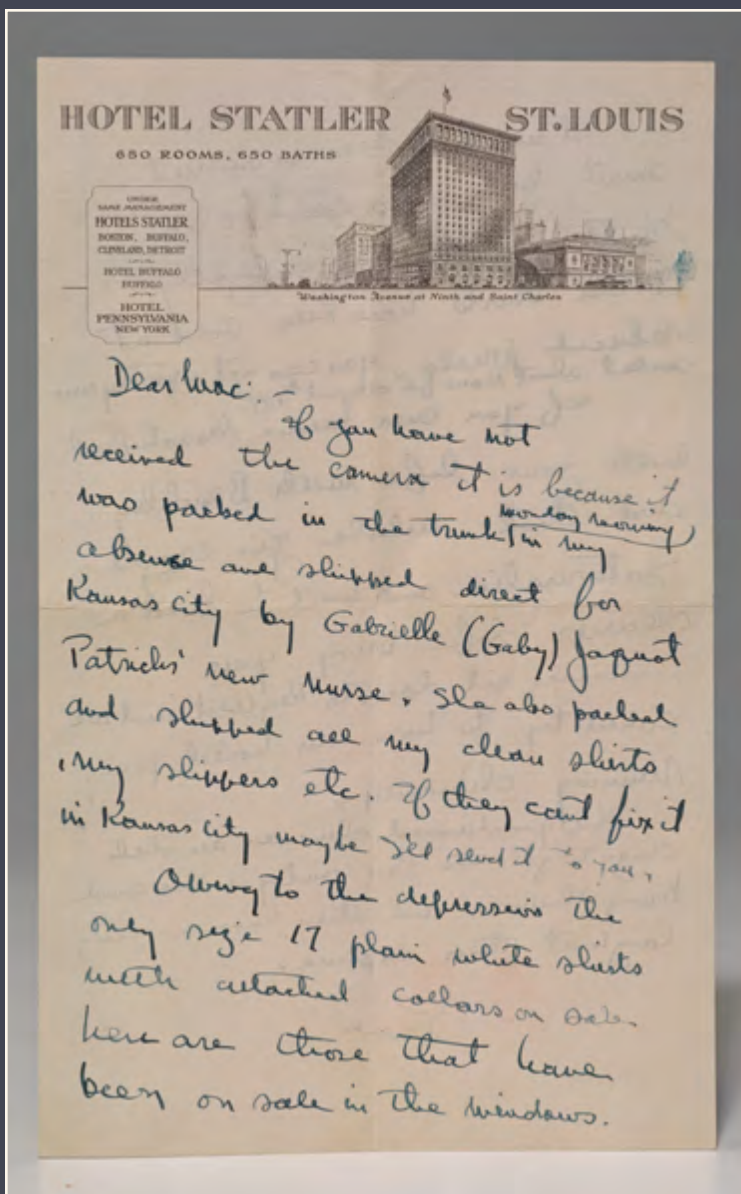 HOTEL STATLER ST. LOUIS
650 ROOMS, 650 BATHS
UNDER
SAME MANAGEMENT
HOTELS STATLER
BOSTON, BUFFALO,
CLEVELAND, DETROIT
HOTEL BUFFALO
BUFFALO
HOTEL
PENNSYLVANIA
NEW YORK
Washington Avenue at Ninth and Saint Charles
Dear Mac: —
If you have not
received the camera it is because it
was packed in the trunk monday morning in my
absence and shipped direct for
Kansas City by Gabrielle (Gaby) Jaquot
Patricks' new nurse. She also packed
and shipped all my clean shirts
, my slippers etc. If they cant fix it
in Kansas City maybe I'll send it to you.
Owing to the depression the
only size 17 plain white shirts
with attached collars on sale
here are those that have
been on sale in the windows.